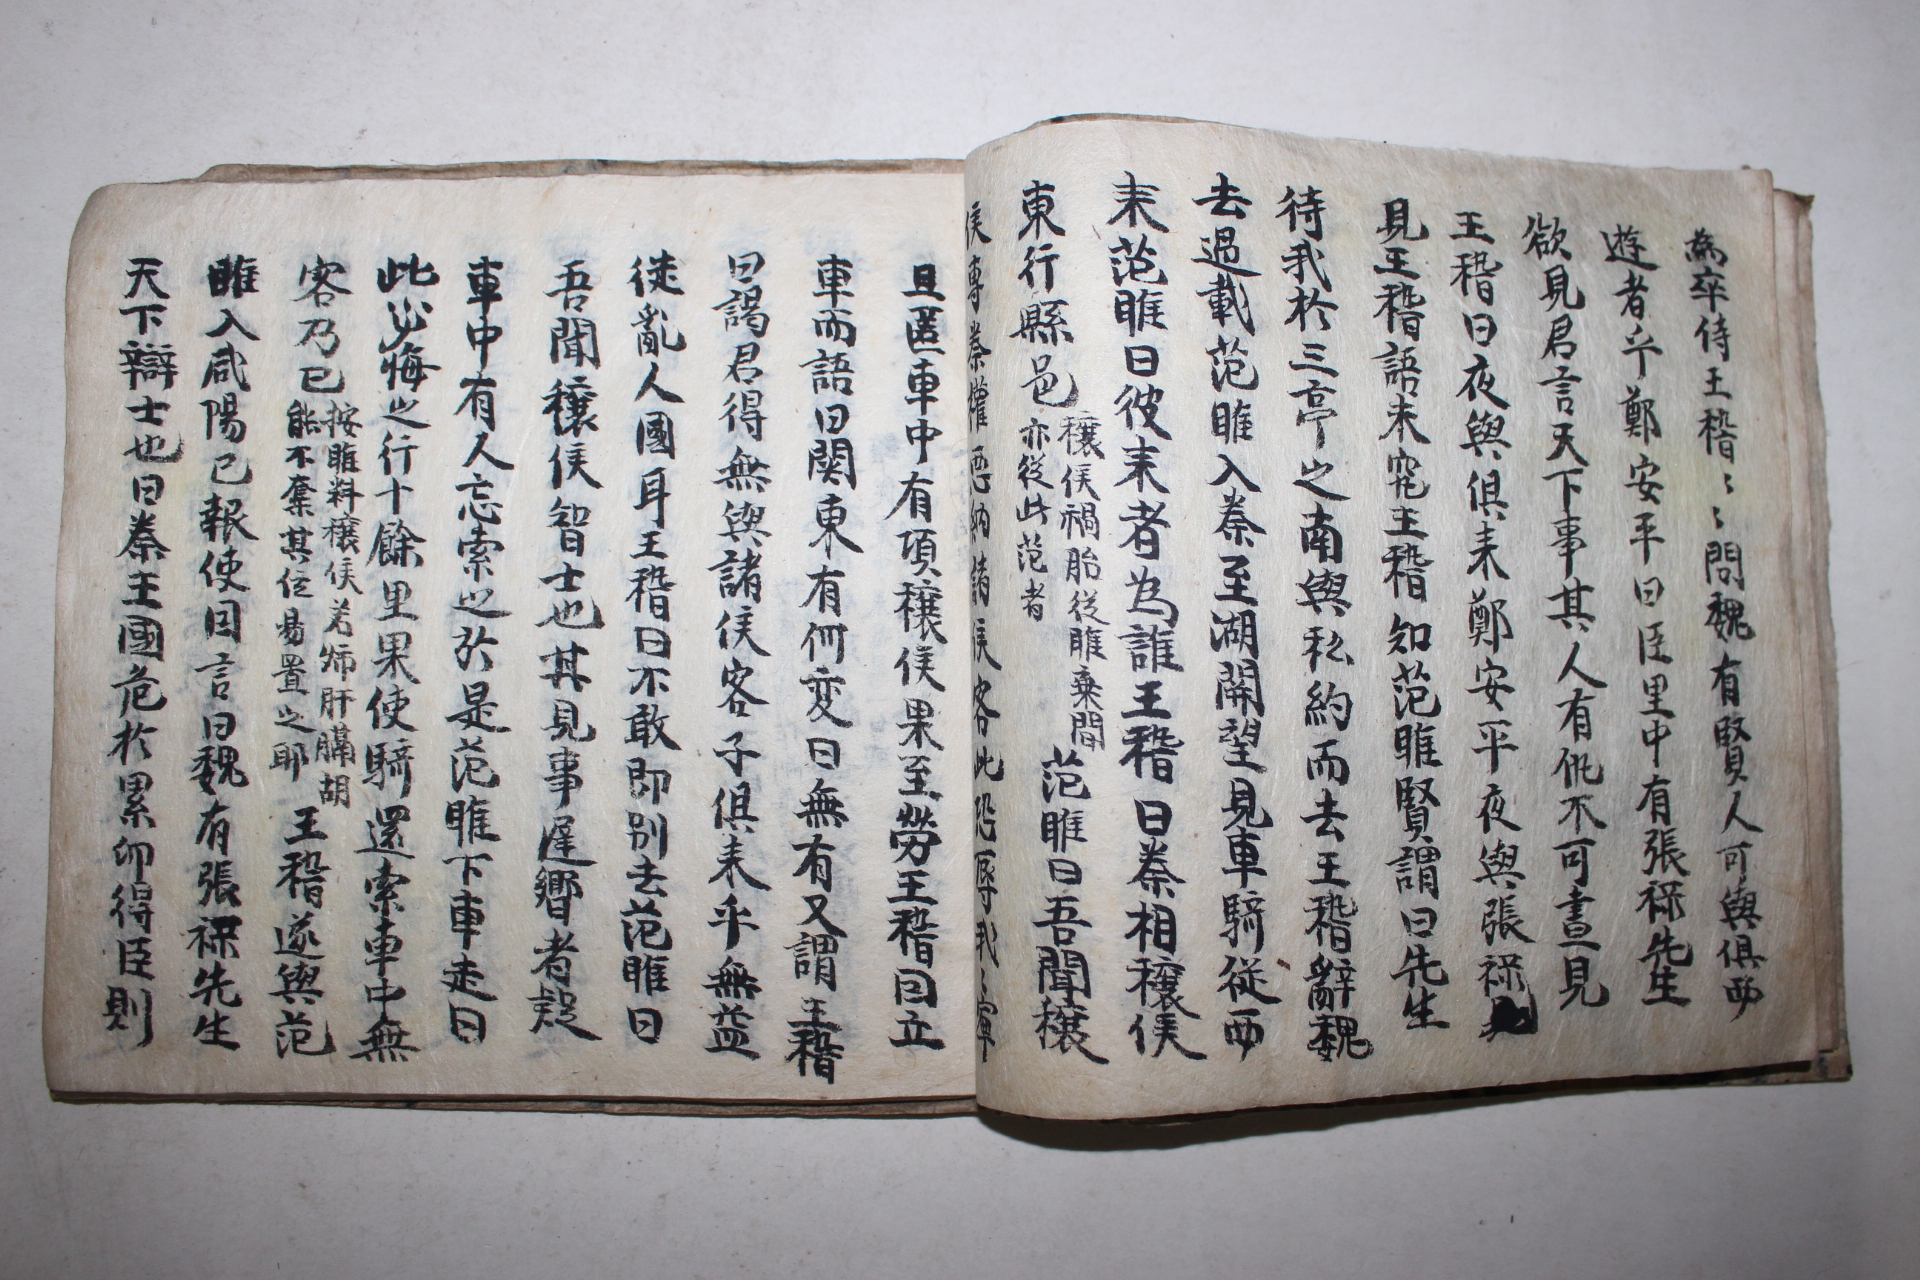 為卒侍王稽〻〻問魏有賢人可與俱西
遊者乎鄭安平曰臣里中有張祿先生
欲見君言天下事其人有仇不可晝見
王稽曰夜與俱来鄭安平夜與張祿
見王稽語未究王稽知范睢賢謂曰先生
待我於三亭之南與私約而去王稽辭魏
去過載范睢入秦至湖関望見車騎從西
来范睢曰彼来者為誰王稽曰秦相穰侯
東行縣邑
穰侯禍胎從睢棄間
亦從此范者
范睢曰吾聞穰
侯專秦權惡納諸侯客此恐辱我〻寧
且匿車中有項穰侯果至勞王稽因立
車而語曰関東有何変曰無有又謂王稽
曰謁君得無與諸侯客子俱来乎無益
徒亂人國耳王稽曰不敢即別去范睢曰
吾聞穰侯智士也其見事遲嚮者疑
車中有人忘索之於是范睢下車走曰
此必悔之行十餘里果使騎還索車中無
客乃已
按睢料穰侯若炳肝膈胡
能不奪其位易置之耶
王稽遂與范
睢入咸陽已報使因言曰魏有張祿先生
天下辯士也曰秦王國危於累卵得臣則